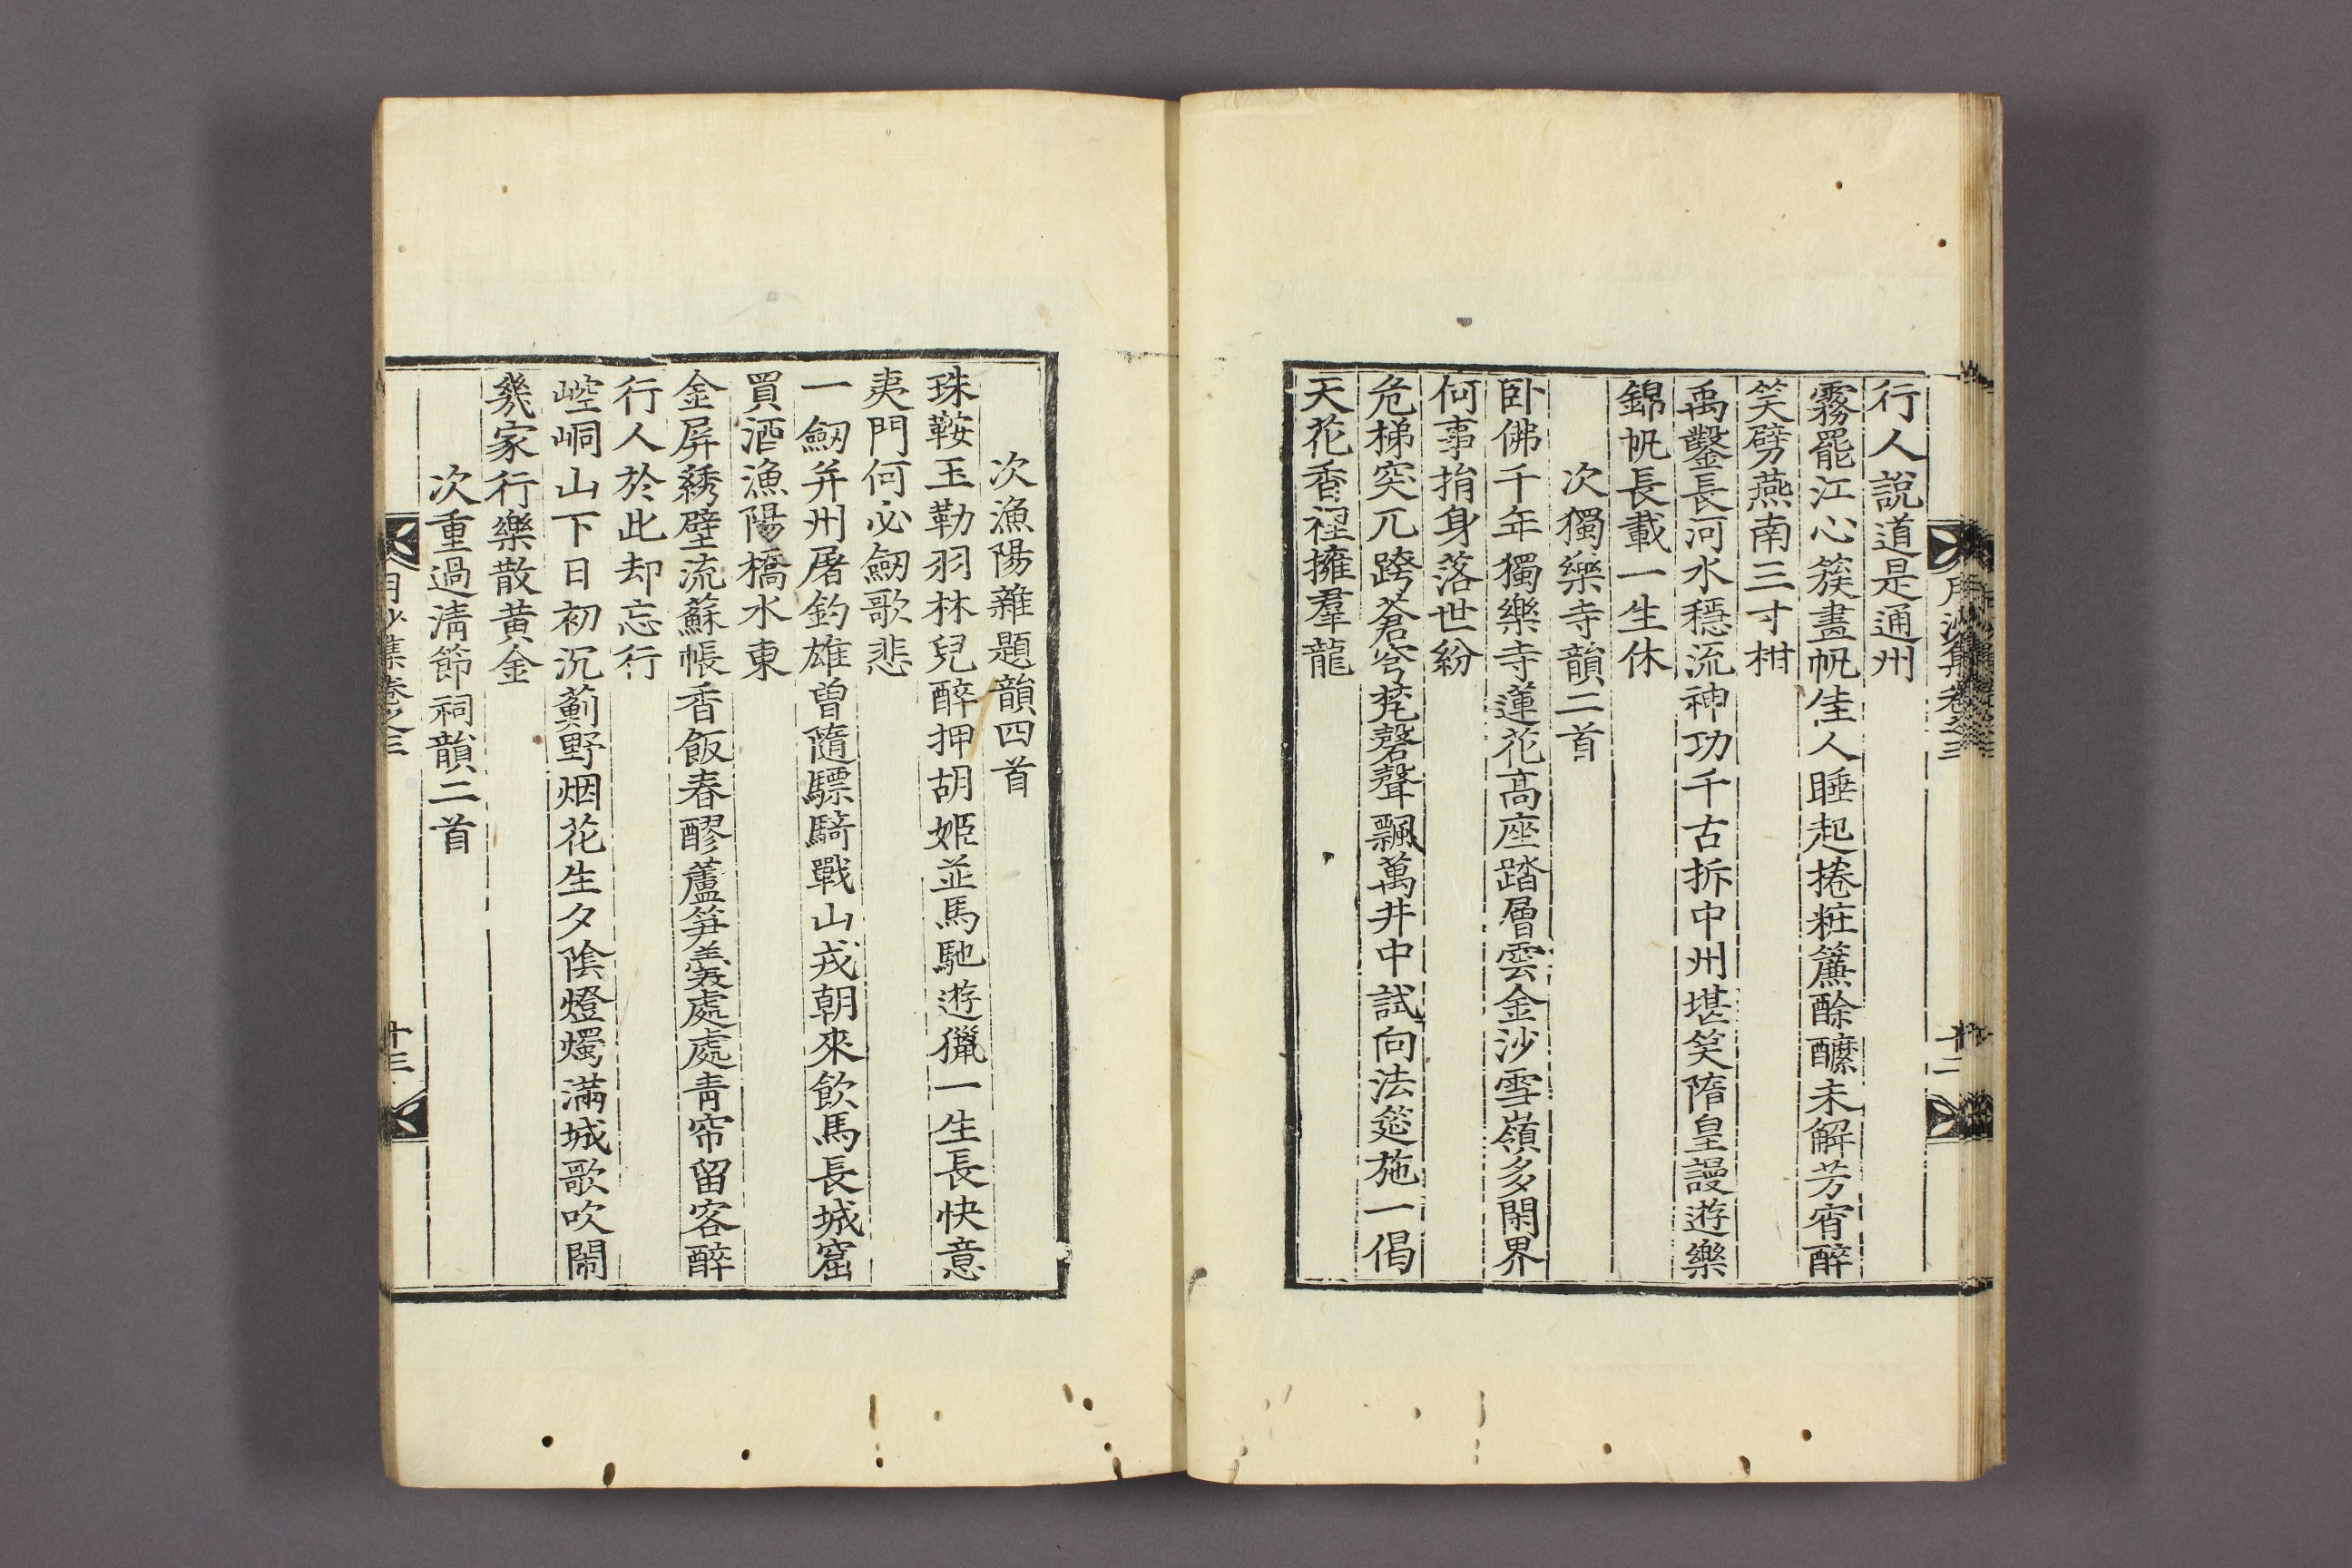 行人說道是通州
霧罷江心簇畫帆佳人睡起捲粧簾酴醿未解芳宵醉
笑劈燕南三寸柑
禹鑿長河水穩流神功千古拆中州堪笑隋皇謾遊樂
錦帆長載一生休
次獨樂寺韻二首
卧佛千年獨樂寺蓮花高座踏層雲金沙雪嶺多閑界
何事捐身落世紛
危梯突兀跨蒼穹梵磬聲飄萬井中試向法筵施一偈
天花香裡擁羣龍
次漁陽雜題韻四首
珠鞍玉勒羽林兒醉押胡姬並馬馳遊獵一生長快意
夷門何必劒歌悲
一劒并州屠釣雄曾隨驃騎戰山戎朝來飲馬長城窟
買酒漁陽橋水東
金屏綉壁流蘇帳香飯春醪蘆笋羹處處青帘留客醉
行人於此却忘行
崆峒山下日初沉薊野烟花生夕陰燈燭滿城歌吹鬧
幾家行樂散黃金
次重過淸節祠韻二首
月沙集卷之三
十三